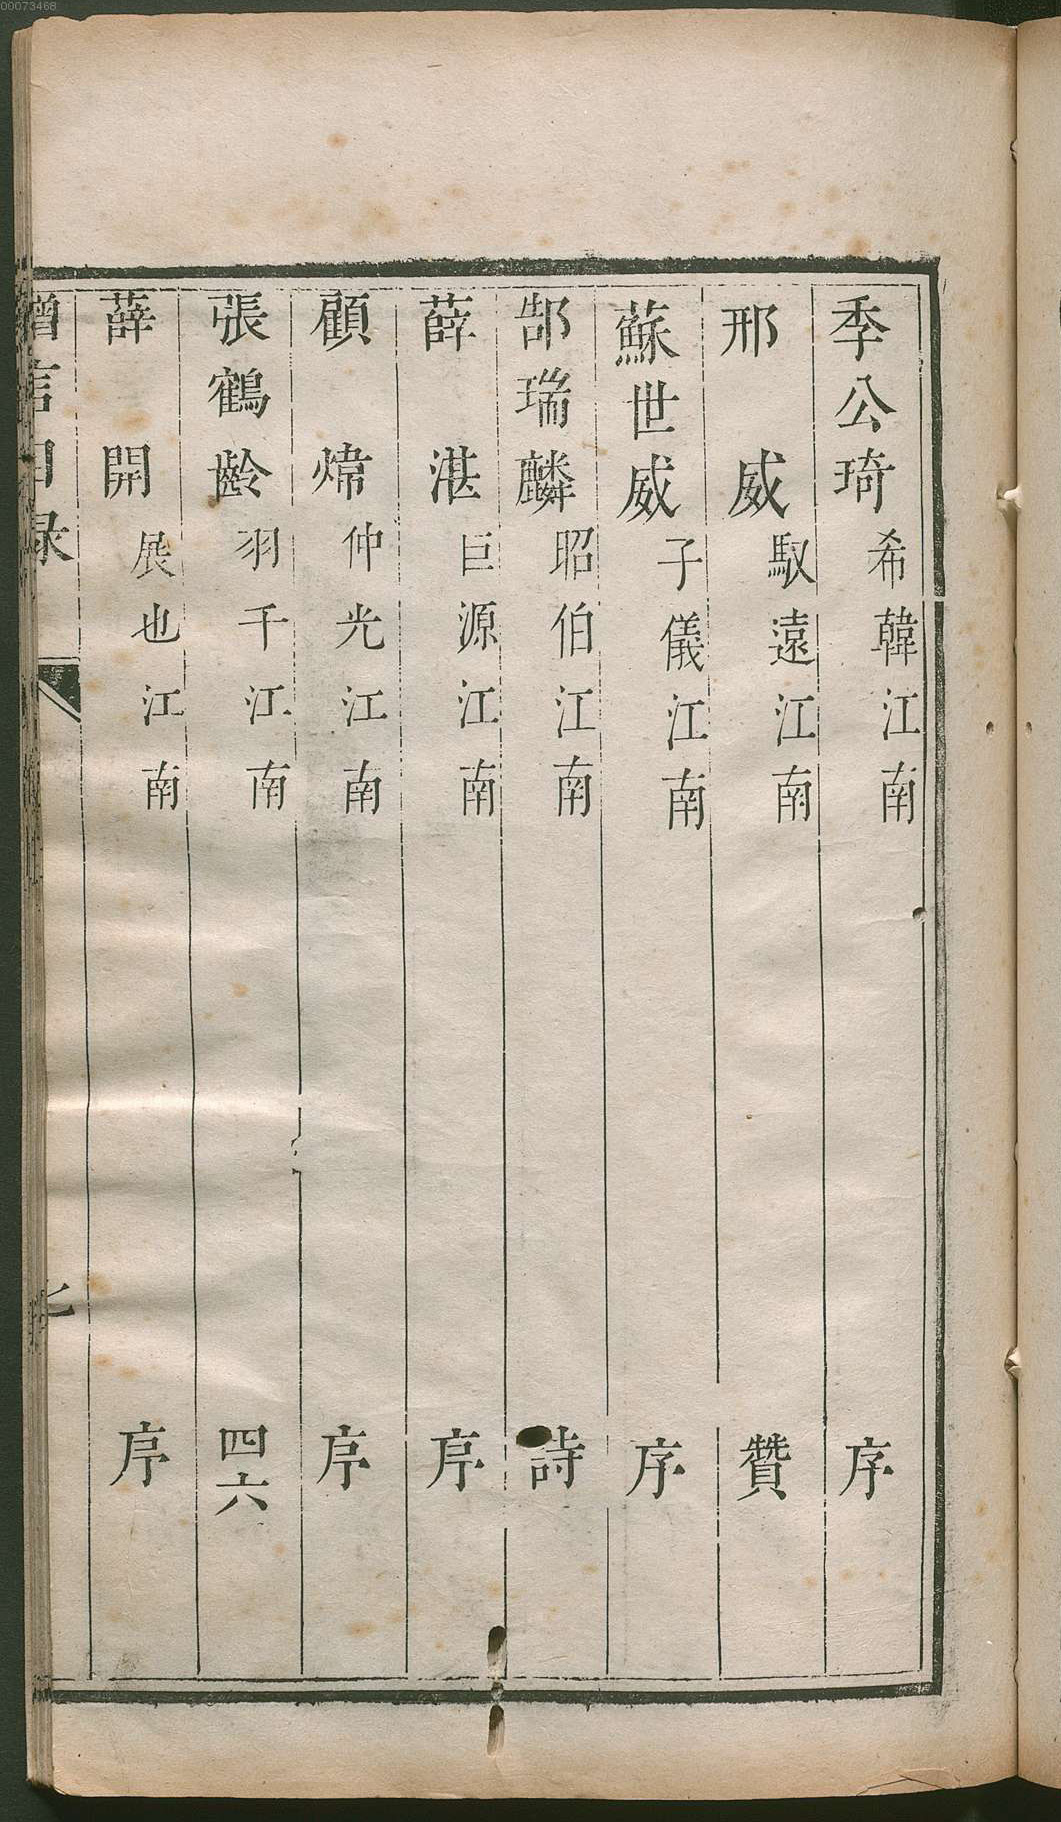 00073468
季公琦 希韓 江南 序
邢威 馭遠 江南 贊
蘇世威 子儀 江南 序
郜瑞麟 昭伯 江南 詩
薛湛 巨源 江南 序
顧煒 仲光 江南 序
張鶴齡 羽千 江南 四六
薛開 展也 江南 序
贈言目録 七